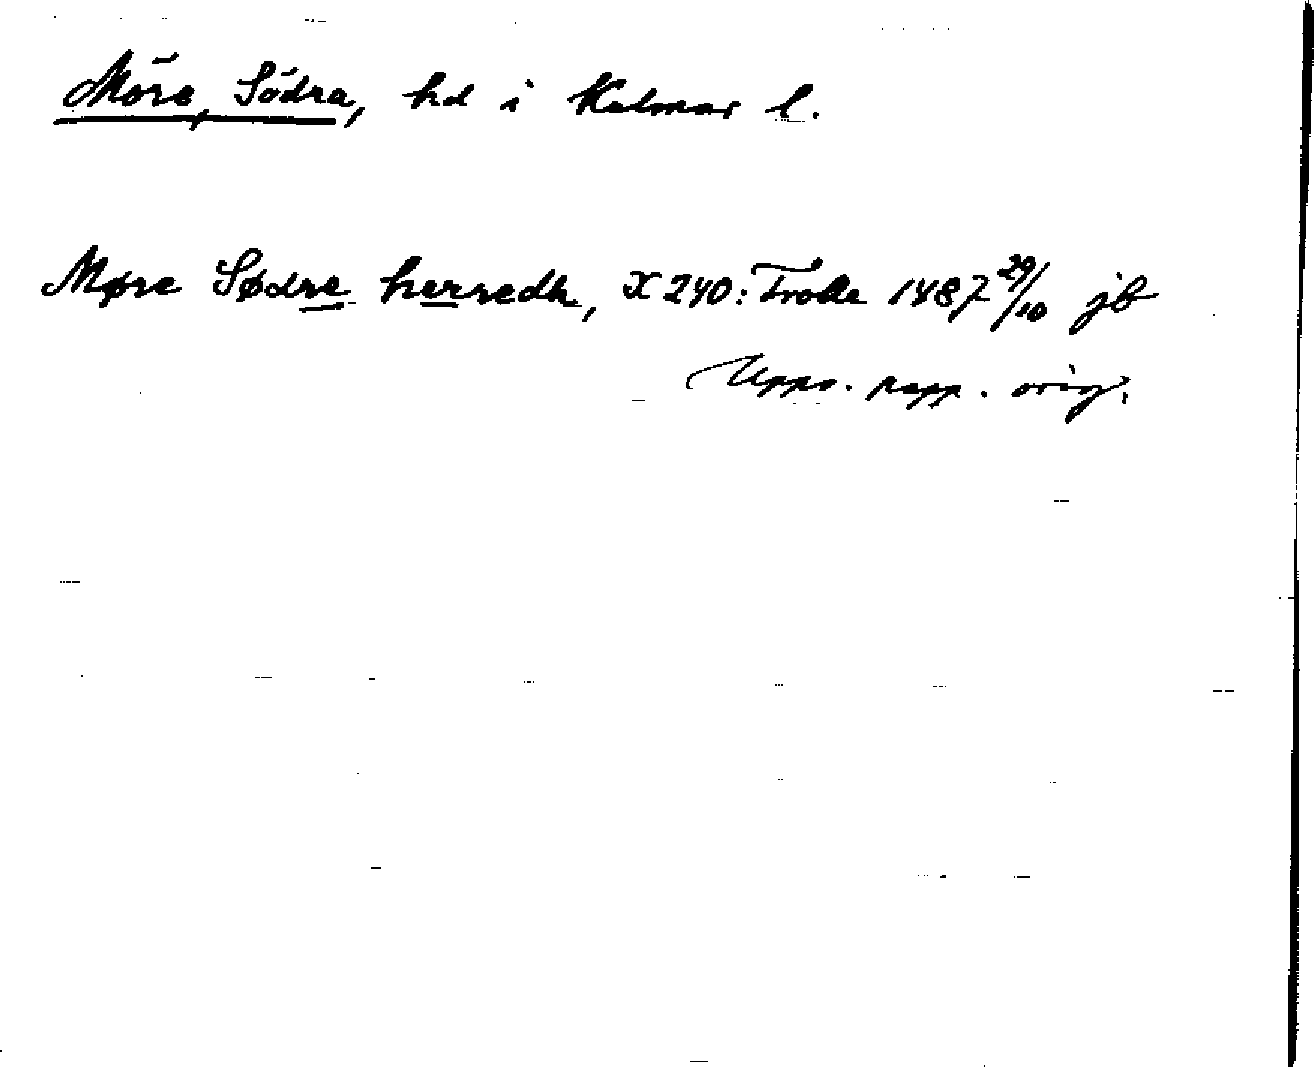 Möre, Södra, hd i Kalmar l.
Møre Sødre herredh, X 240: Trolle 1487 29/10 jb
Upps. papp. orig.